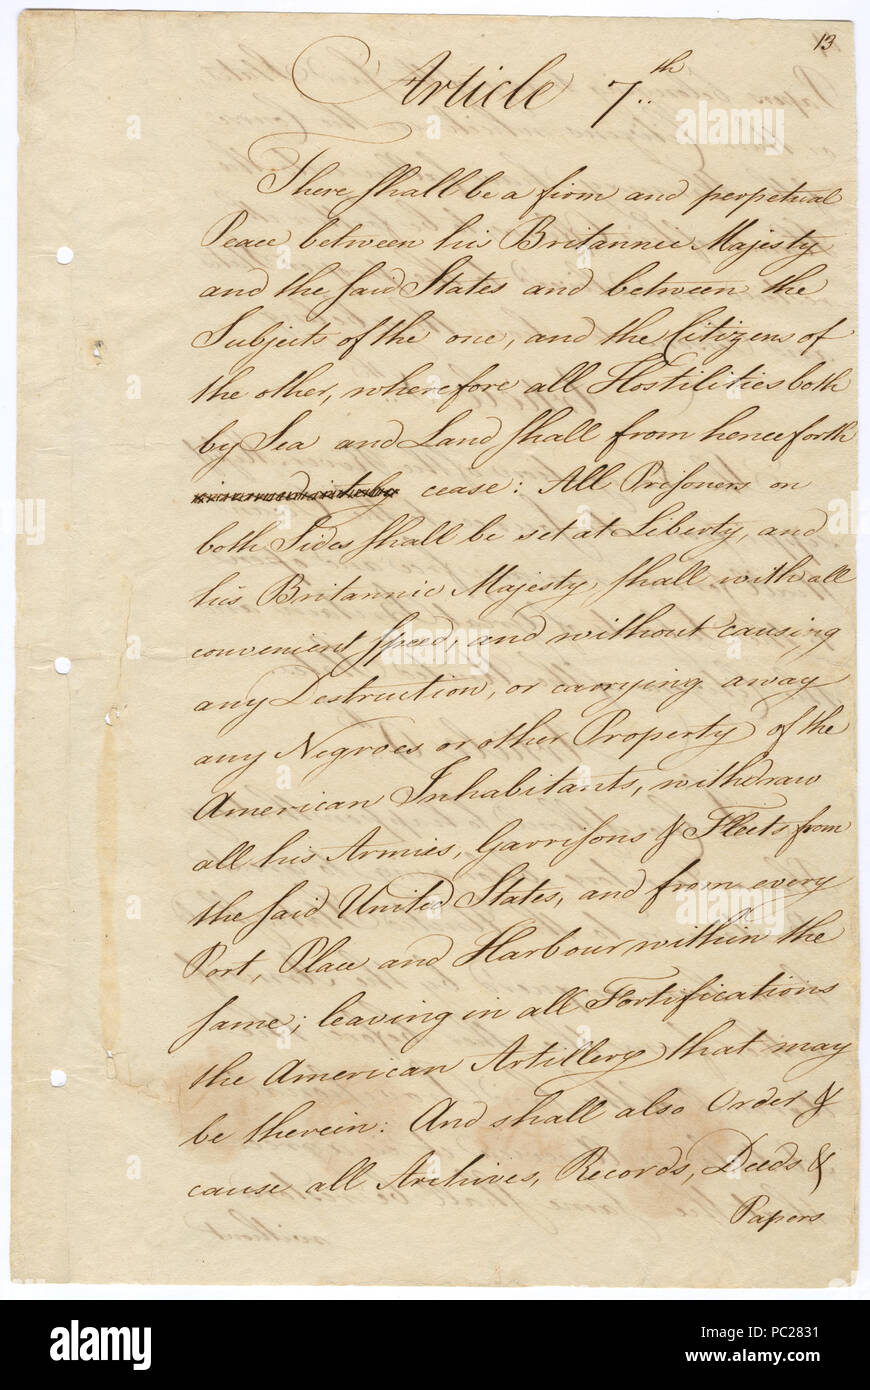 13
Article 7..th
There shall be a firm and perpetual
Peace between his Britannic Majesty
and the said States and between the
Subjects of the one, and the Citizens of
the other, wherefore all Hostilities both
by Sea and Land shall from henceforth
cease: All Prisoners on
both Sides shall be set at Liberty, and
his Britannic Majesty, shall with all
convenient Speed, and without causing
any Destruction, or carrying away
any Negroes or other Property of the
American Inhabitants, withdraw
all his Armies, Garrisons & Fleets from
the said United States, and from every
Port, Place and Harbour within the
same; leaving in all Fortifications
the American Artillery that may
be therein: And shall also Order &
cause all Archives, Records, Deeds &
Papers
alamy
Image ID: PC2831
www.alamy.com